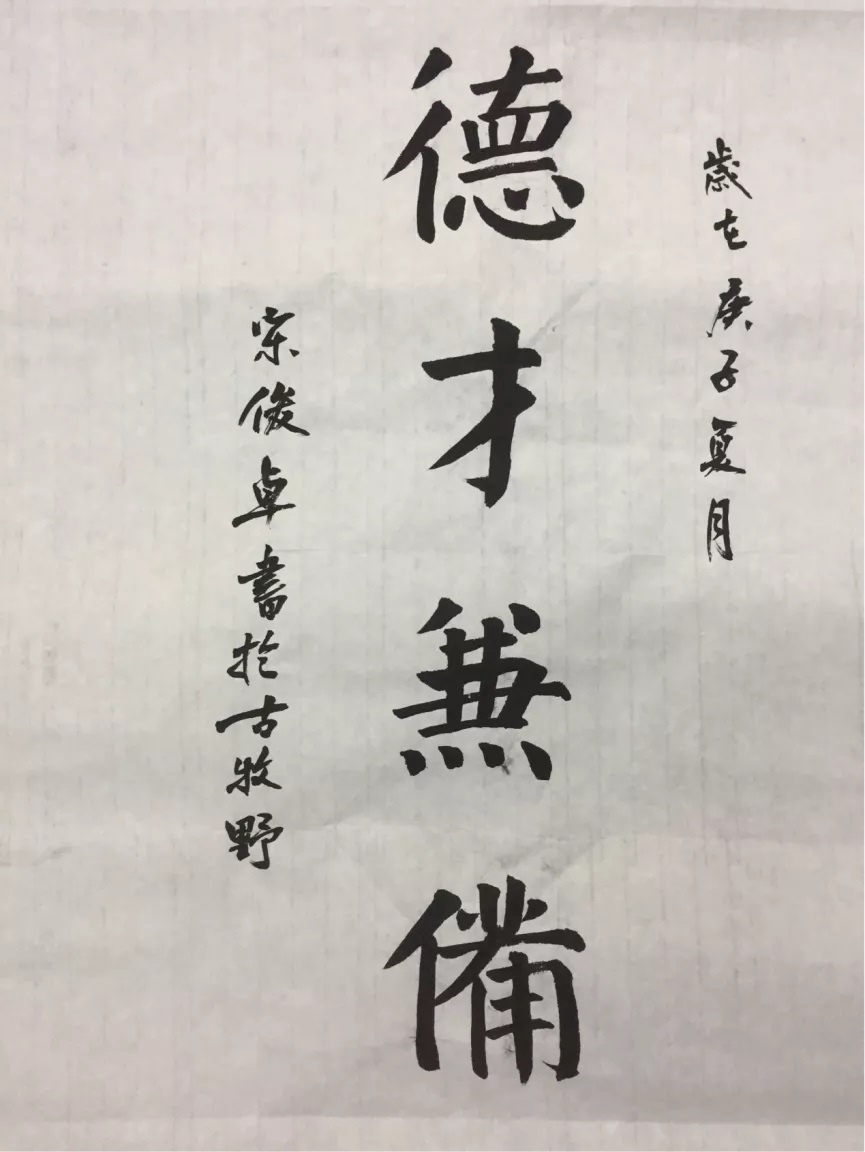 歲在庚子夏月
德才兼備
宋俊卓書於古牧野